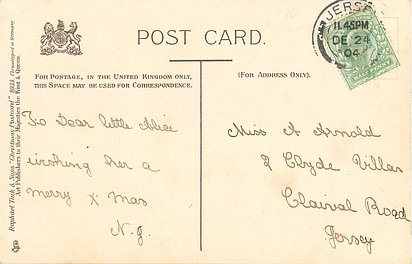 POST CARD.
FOR POSTAGE, IN THE UNITED KINGDOM ONLY,
THIS SPACE MAY BE USED FOR CORRESPONDENCE.
(FOR ADDRESS ONLY).
JERSEY
11.45PM
DE 24
04
To Dear little Alice
wishing her a
merry X mas
N.J.
Miss A Arnold
2 Clyde Villas
Claival Road
Jersey
Raphael Tuck & Sons' "Christmas Postcard" 1933. Chromotyped in Germany
Art Publishers to their Majesties the King & Queen.